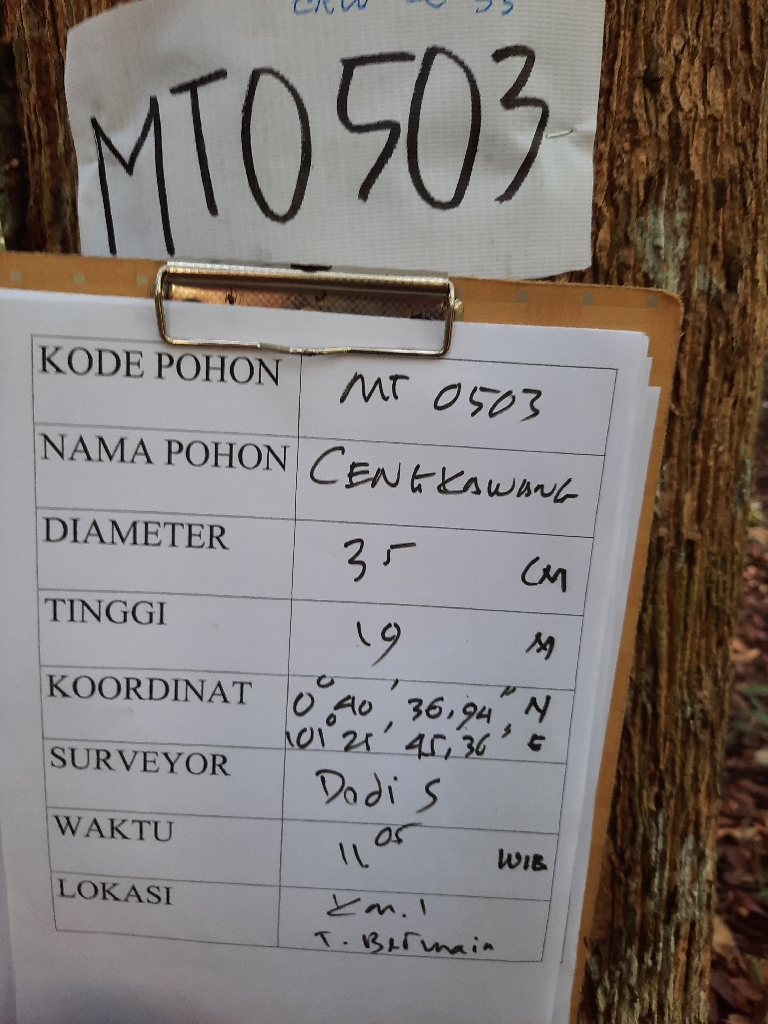 MT0503
KODE POHON MT 0503
NAMA POHON CENGKAWANG
DIAMETER 35 CM
TINGGI 19 M
KOORDINAT 0° 40' 36,94" N
101° 25' 45,36" E
SURVEYOR Dodi S
WAKTU 11.05 WIB
LOKASI Km. 1
T. Bermain